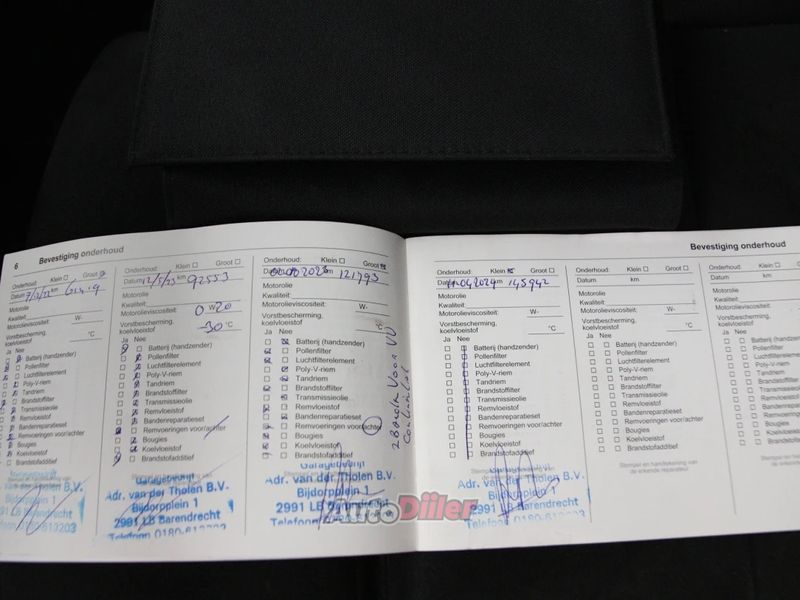 6 Bevestiging onderhoud
Groot
Datum 7/12/22 km
Motorolie
Kwaliteit:
Motorolieviscositeit: W-
Vorstbescherming, koelvloeistof °C
Ja Nee
Batterij (handzender)
Pollenfilter
Luchtfilterelement
Poly-V-riem
Tandriem
Brandstoffilter
Transmissieolie
Remvloeistof
Bandenreparatieset
Remvoeringen voor/achter
Bougies
Koelvloeistof
Brandstofadditief
Onderhoud: Klein Groot
Datum 12/5/23 km 92553
Motorolie
Kwaliteit:
Motorolieviscositeit: 0 W- 20
Vorstbescherming, koelvloeistof -30 °C
Ja Nee
Batterij (handzender)
Pollenfilter
Luchtfilterelement
Poly-V-riem
Tandriem
Brandstoffilter
Transmissieolie
Remvloeistof
Bandenreparatieset
Remvoeringen voor/achter
Bougies
Koelvloeistof
Brandstofadditief
Adr. van der Tholen B.V.
Bijdorpplein 1
2991 LB Barendrecht
Telefoon 0180-613203
Onderhoud: Klein Groot
Datum 2023 km 121793
Motorolie
Kwaliteit:
Motorolieviscositeit: W-
Vorstbescherming, koelvloeistof °C
Ja Nee
Batterij (handzender)
Pollenfilter
Luchtfilterelement
Poly-V-riem
Tandriem
Brandstoffilter
Transmissieolie
Remvloeistof
Bandenreparatieset
Remvoeringen voor/achter
Bougies
Koelvloeistof
Brandstofadditief
Voor
Continental
Garagebedrijf
Adr. van der Tholen B.V.
Bijdorpplein 1
2991 LB Barendrecht
Telefoon
AutoDiler
Bevestiging onderhoud
Onderhoud: Klein Groot
Datum 04 2024 km 145942
Motorolie
Kwaliteit:
Motorolieviscositeit: W-
Vorstbescherming, koelvloeistof °C
Ja Nee
Batterij (handzender)
Pollenfilter
Luchtfilterelement
Poly-V-riem
Tandriem
Brandstoffilter
Transmissieolie
Remvloeistof
Bandenreparatieset
Remvoeringen voor/achter
Bougies
Koelvloeistof
Brandstofadditief
Garagebedrijf
Adr. van der Tholen B.V.
Bijdorpplein 1
2991 LB Barendrecht
Telefoon 0180-613203
Onderhoud: Klein Groot
Datum km
Motorolie
Kwaliteit:
Motorolieviscositeit: W-
Vorstbescherming, koelvloeistof °C
Ja Nee
Batterij (handzender)
Pollenfilter
Luchtfilterelement
Poly-V-riem
Tandriem
Brandstoffilter
Transmissieolie
Remvloeistof
Bandenreparatieset
Remvoeringen voor/achter
Bougies
Koelvloeistof
Brandstofadditief
Stempel en handtekening van de erkende reparateur
Onderhoud: Klein
Datum km
Motorolie
Kwaliteit:
Motorolieviscositeit:
Vorstbescherming, koelvloeistof
Ja Nee
Batterij (handzender)
Pollenfilter
Luchtfilterelement
Poly-V-riem
Tandriem
Brandstoffilter
Transmissieolie
Remvloeistof
Bandenreparatieset
Remvoeringen
Bougies
Koelvloeistof
Brandstofadditief